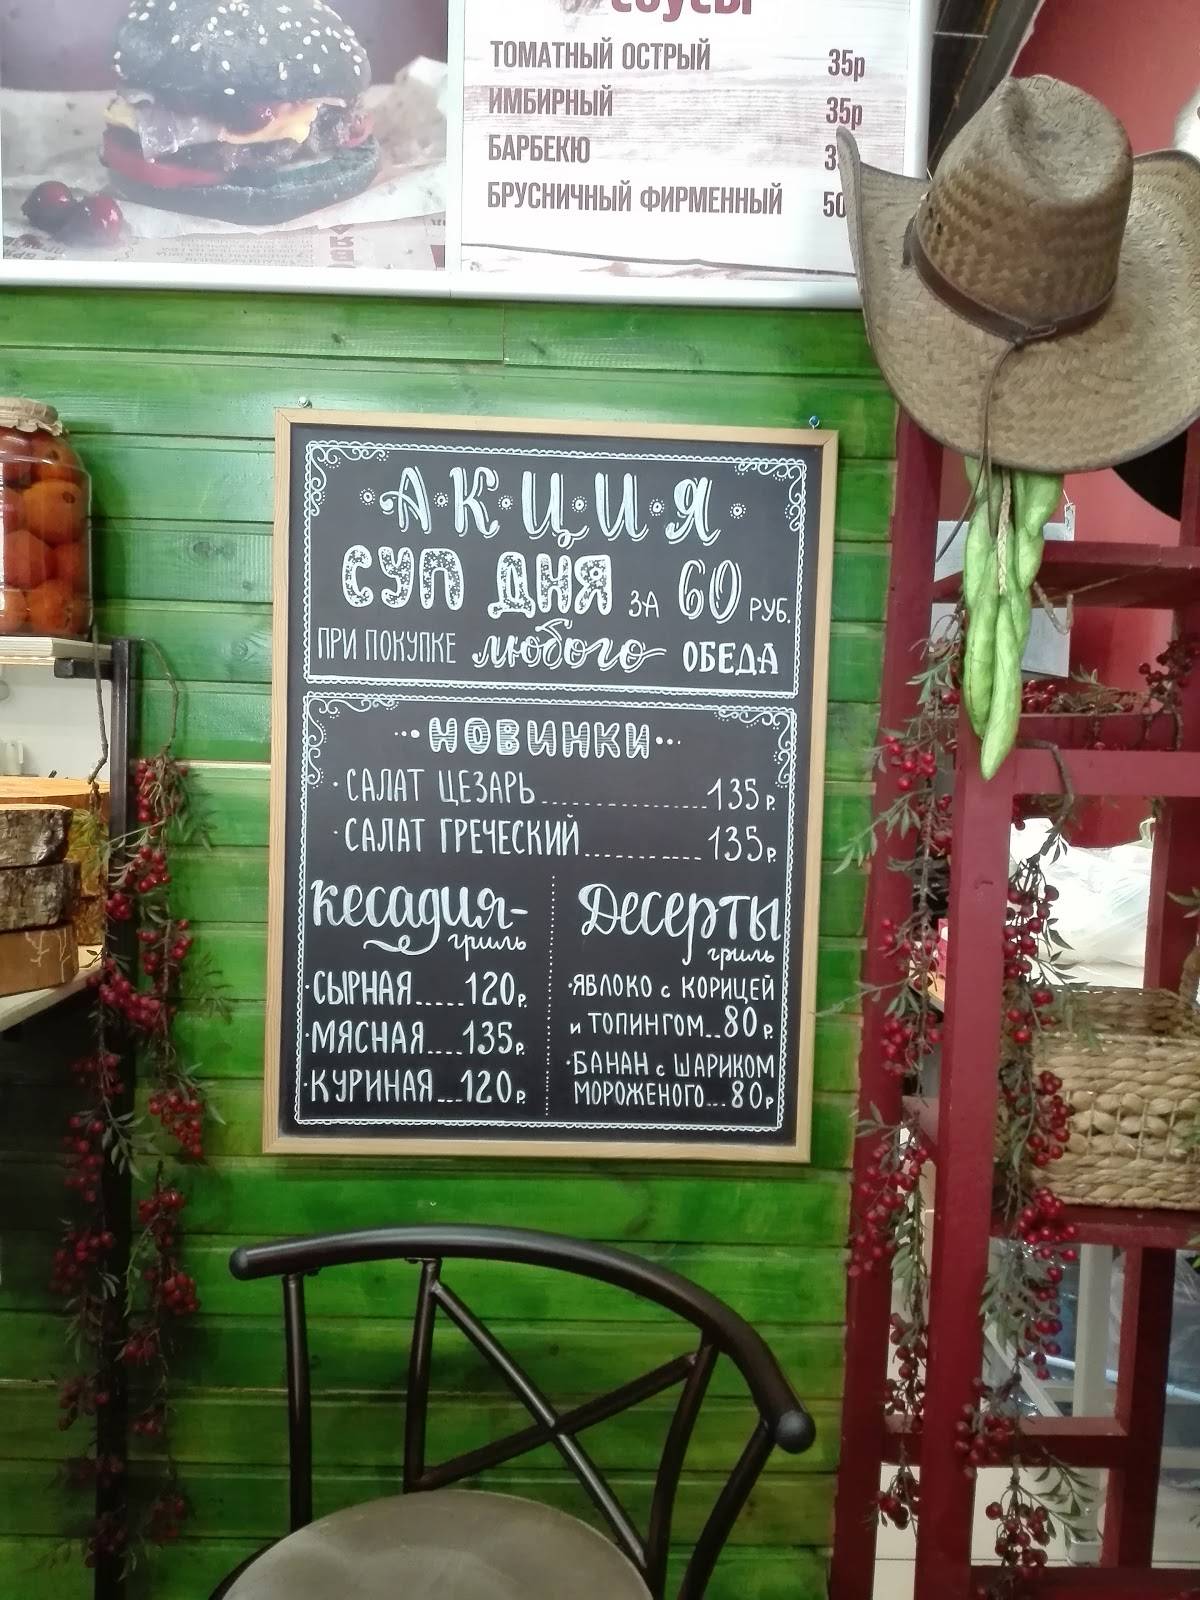 соусы
ТОМАТНЫЙ ОСТРЫЙ 35р
ИМБИРНЫЙ 35р
БАРБЕКЮ
БРУСНИЧНЫЙ ФИРМЕННЫЙ 50
АКЦИЯ
СУП ДНЯ ЗА 60 РУБ.
ПРИ ПОКУПКЕ любого ОБЕДА
НОВИНКИ
САЛАТ ЦЕЗАРЬ................135 Р.
САЛАТ ГРЕЧЕСКИЙ...........135 Р.
Кесадия-
гриль
СЫРНАЯ.....120 Р.
МЯСНАЯ....135 Р.
КУРИНАЯ...120 Р.
Десерты
гриль
ЯБЛОКО с КОРИЦЕЙ
и ТОПИНГОМ...80 Р.
БАНАН с ШАРИКОМ
МОРОЖЕНОГО...80 Р